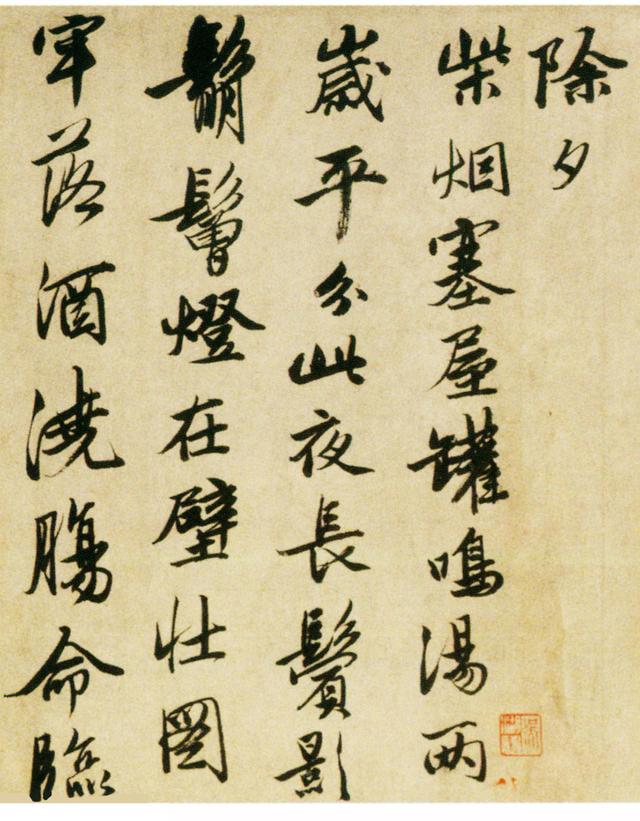 除夕
柴烟塞屋罐鳴湯兩
歲平分此夜長鬢影
鬅鬙燈在壁壯圖
牢落酒澆腸命臨